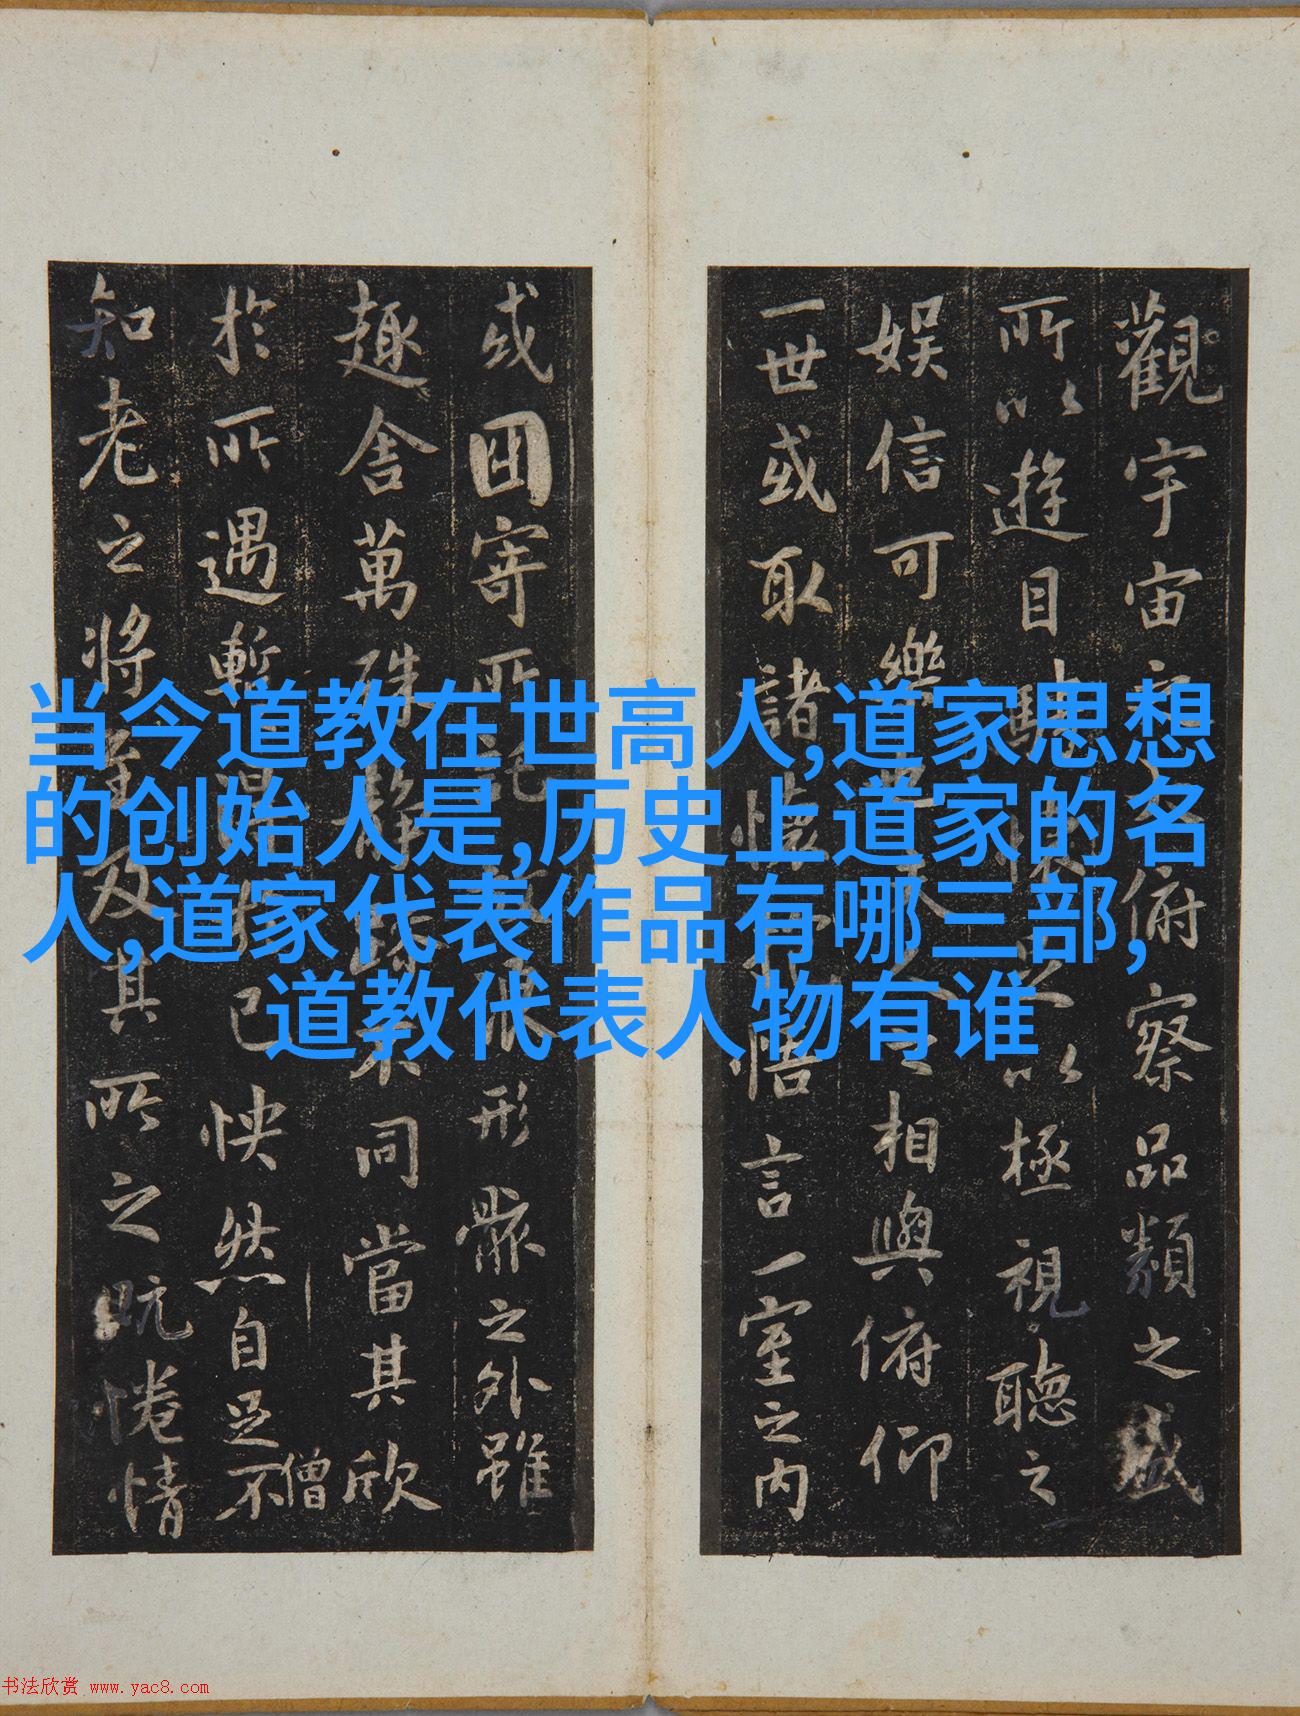 觀宇宙之大俯察品類之盛
所以遊目騁懷足以極視聽之
娛信可樂也夫人之相與俯仰
一世或取諸懷抱悟言一室之內
或因寄所託放浪形骸之外雖
趣舍萬殊靜躁不同當其欣
僧
於所遇暫得於己快然自足不
知老之將至及其所之既惓情
当今道教在世高人,道家思想
的创始人是,历史上道家的名
人,道家代表作品有哪三部,
道教代表人物有谁
书法欣赏 www.yac8.com